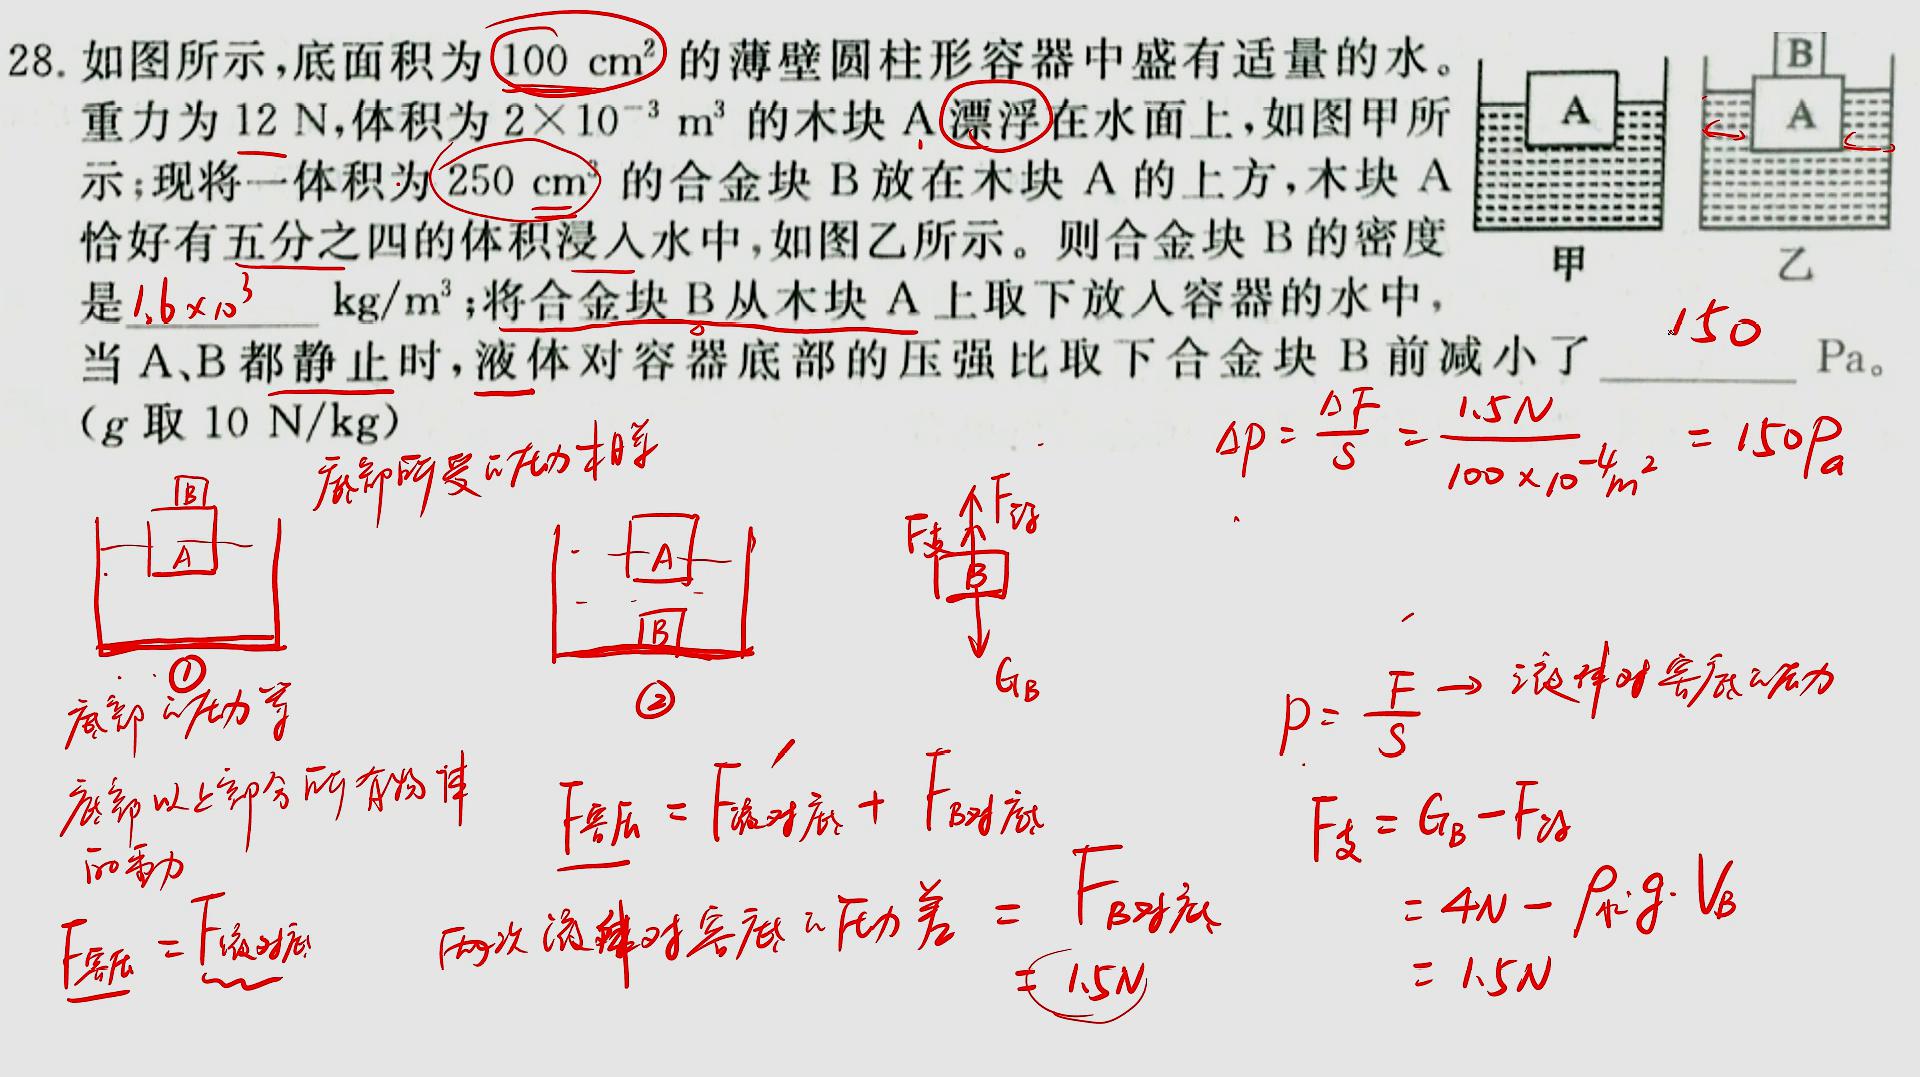 28. 如图所示,底面积为 100 cm² 的薄壁圆柱形容器中盛有适量的水。
重力为 12 N,体积为 2×10⁻³ m³ 的木块 A 漂浮在水面上,如图甲所
示;现将一体积为 250 cm³ 的合金块 B 放在木块 A 的上方,木块 A
恰好有五分之四的体积浸入水中,如图乙所示。则合金块 B 的密度
是 1.6×10³ kg/m³;将合金块 B 从木块 A 上取下放入容器的水中,
当 A、B 都静止时,液体对容器底部的压强比取下合金块 B 前减小了 150 Pa。
(g 取 10 N/kg)
A
甲
B
A
乙
底部所受的压力相等
Δp = ΔF/S = 1.5N/100×10⁻⁴m² = 150Pa
B
A
①
A
B
②
F支 F浮
B
G_B
底部的压力等
底部以上部分所有物体
的重力
F容底 = F液对底
F容底 = F液对底′ + F_B对底
两次液体对容底的压力差 = F_B对底
= 1.5N
p = F/S → 液体对容底的压力
F支 = G_B - F浮
= 4N - ρ水·g·V_B
= 1.5N